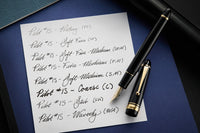 Pilot #15 - Posting (PO)
Pilot #15 - Soft Fine (SF)
Pilot #15 - Soft Fine-Medium (SFM)
Pilot #15 - Fine-Medium (FM)
Pilot #15 - Soft Medium (SM)
Pilot #15 - Coarse (C)
Pilot #15 - (SU)
Pilot #15 - Waverly (WA)